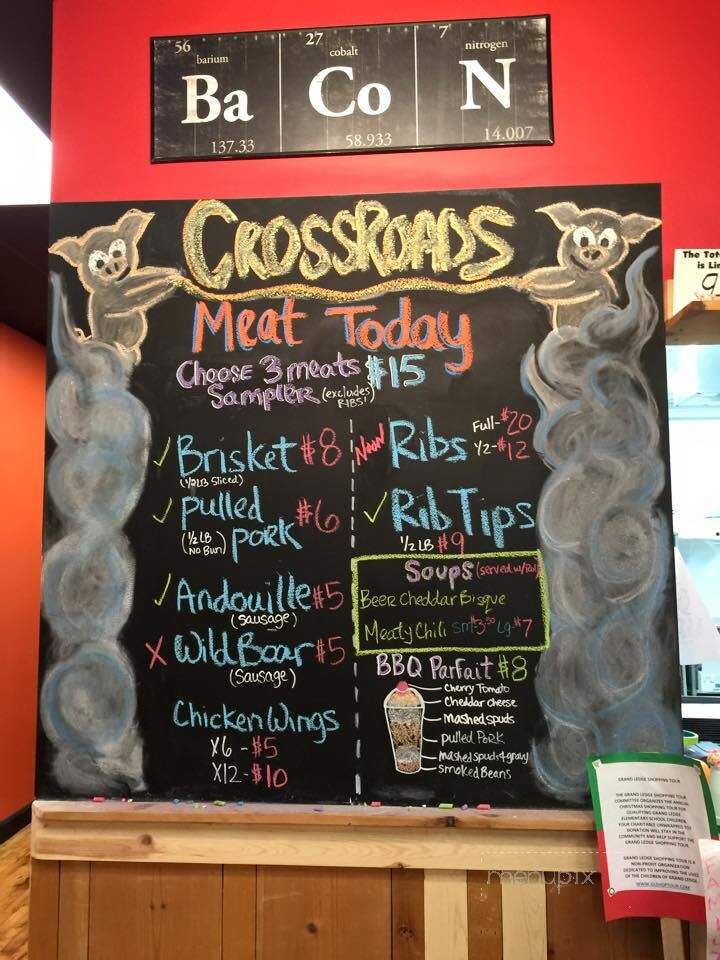 56
barium
Ba
137.33
27
cobalt
Co
58.933
7
nitrogen
N
14.007
CROSSROADS
Meat Today
Choose 3 meats $15
Sampler (excludes
RIBS!)
✓ Brisket $8
(1/2LB Sliced)
✓ pulled
pork $6
(1/2 LB
No Bun)
✓ Andouille $5
(sausage)
X Wild Boar $5
(Sausage)
Chicken Wings
X6 - $5
X12 - $10
Noon Ribs Full- $20
1/2- $12
✓ Rib Tips
1/2 LB $9
Soups (served w/
Beer Cheddar Bisque
Meaty Chili sm $3.50 Lg $7
BBQ Parfait $8
Cherry Tomato
Cheddar cheese
Mashed spuds
pulled Pork
mashed spuds + gravy
smoked Beans
The Tot
is Li
9
GRAND LEDGE SHOPPING TOUR
THE GRAND LEDGE SHOPPING TOUR
COMMITTEE ORGANIZES THE ANNUAL
CHRISTMAS SHOPPING TOUR FOR
QUALIFYING GRAND LEDGE
ELEMENTARY SCHOOL CHILDREN.
YOUR CHARITABLE UNWRAPPED TOY
DONATION WILL STAY IN THE
COMMUNITY AND HELP SUPPORT THE
GRAND LEDGE SHOPPING TOUR.
GRAND LEDGE SHOPPING TOUR IS A
NON-PROFIT ORGANIZATION
DEDICATED TO IMPROVING THE LIVES
OF THE CHILDREN OF GRAND LEDGE.
menupix